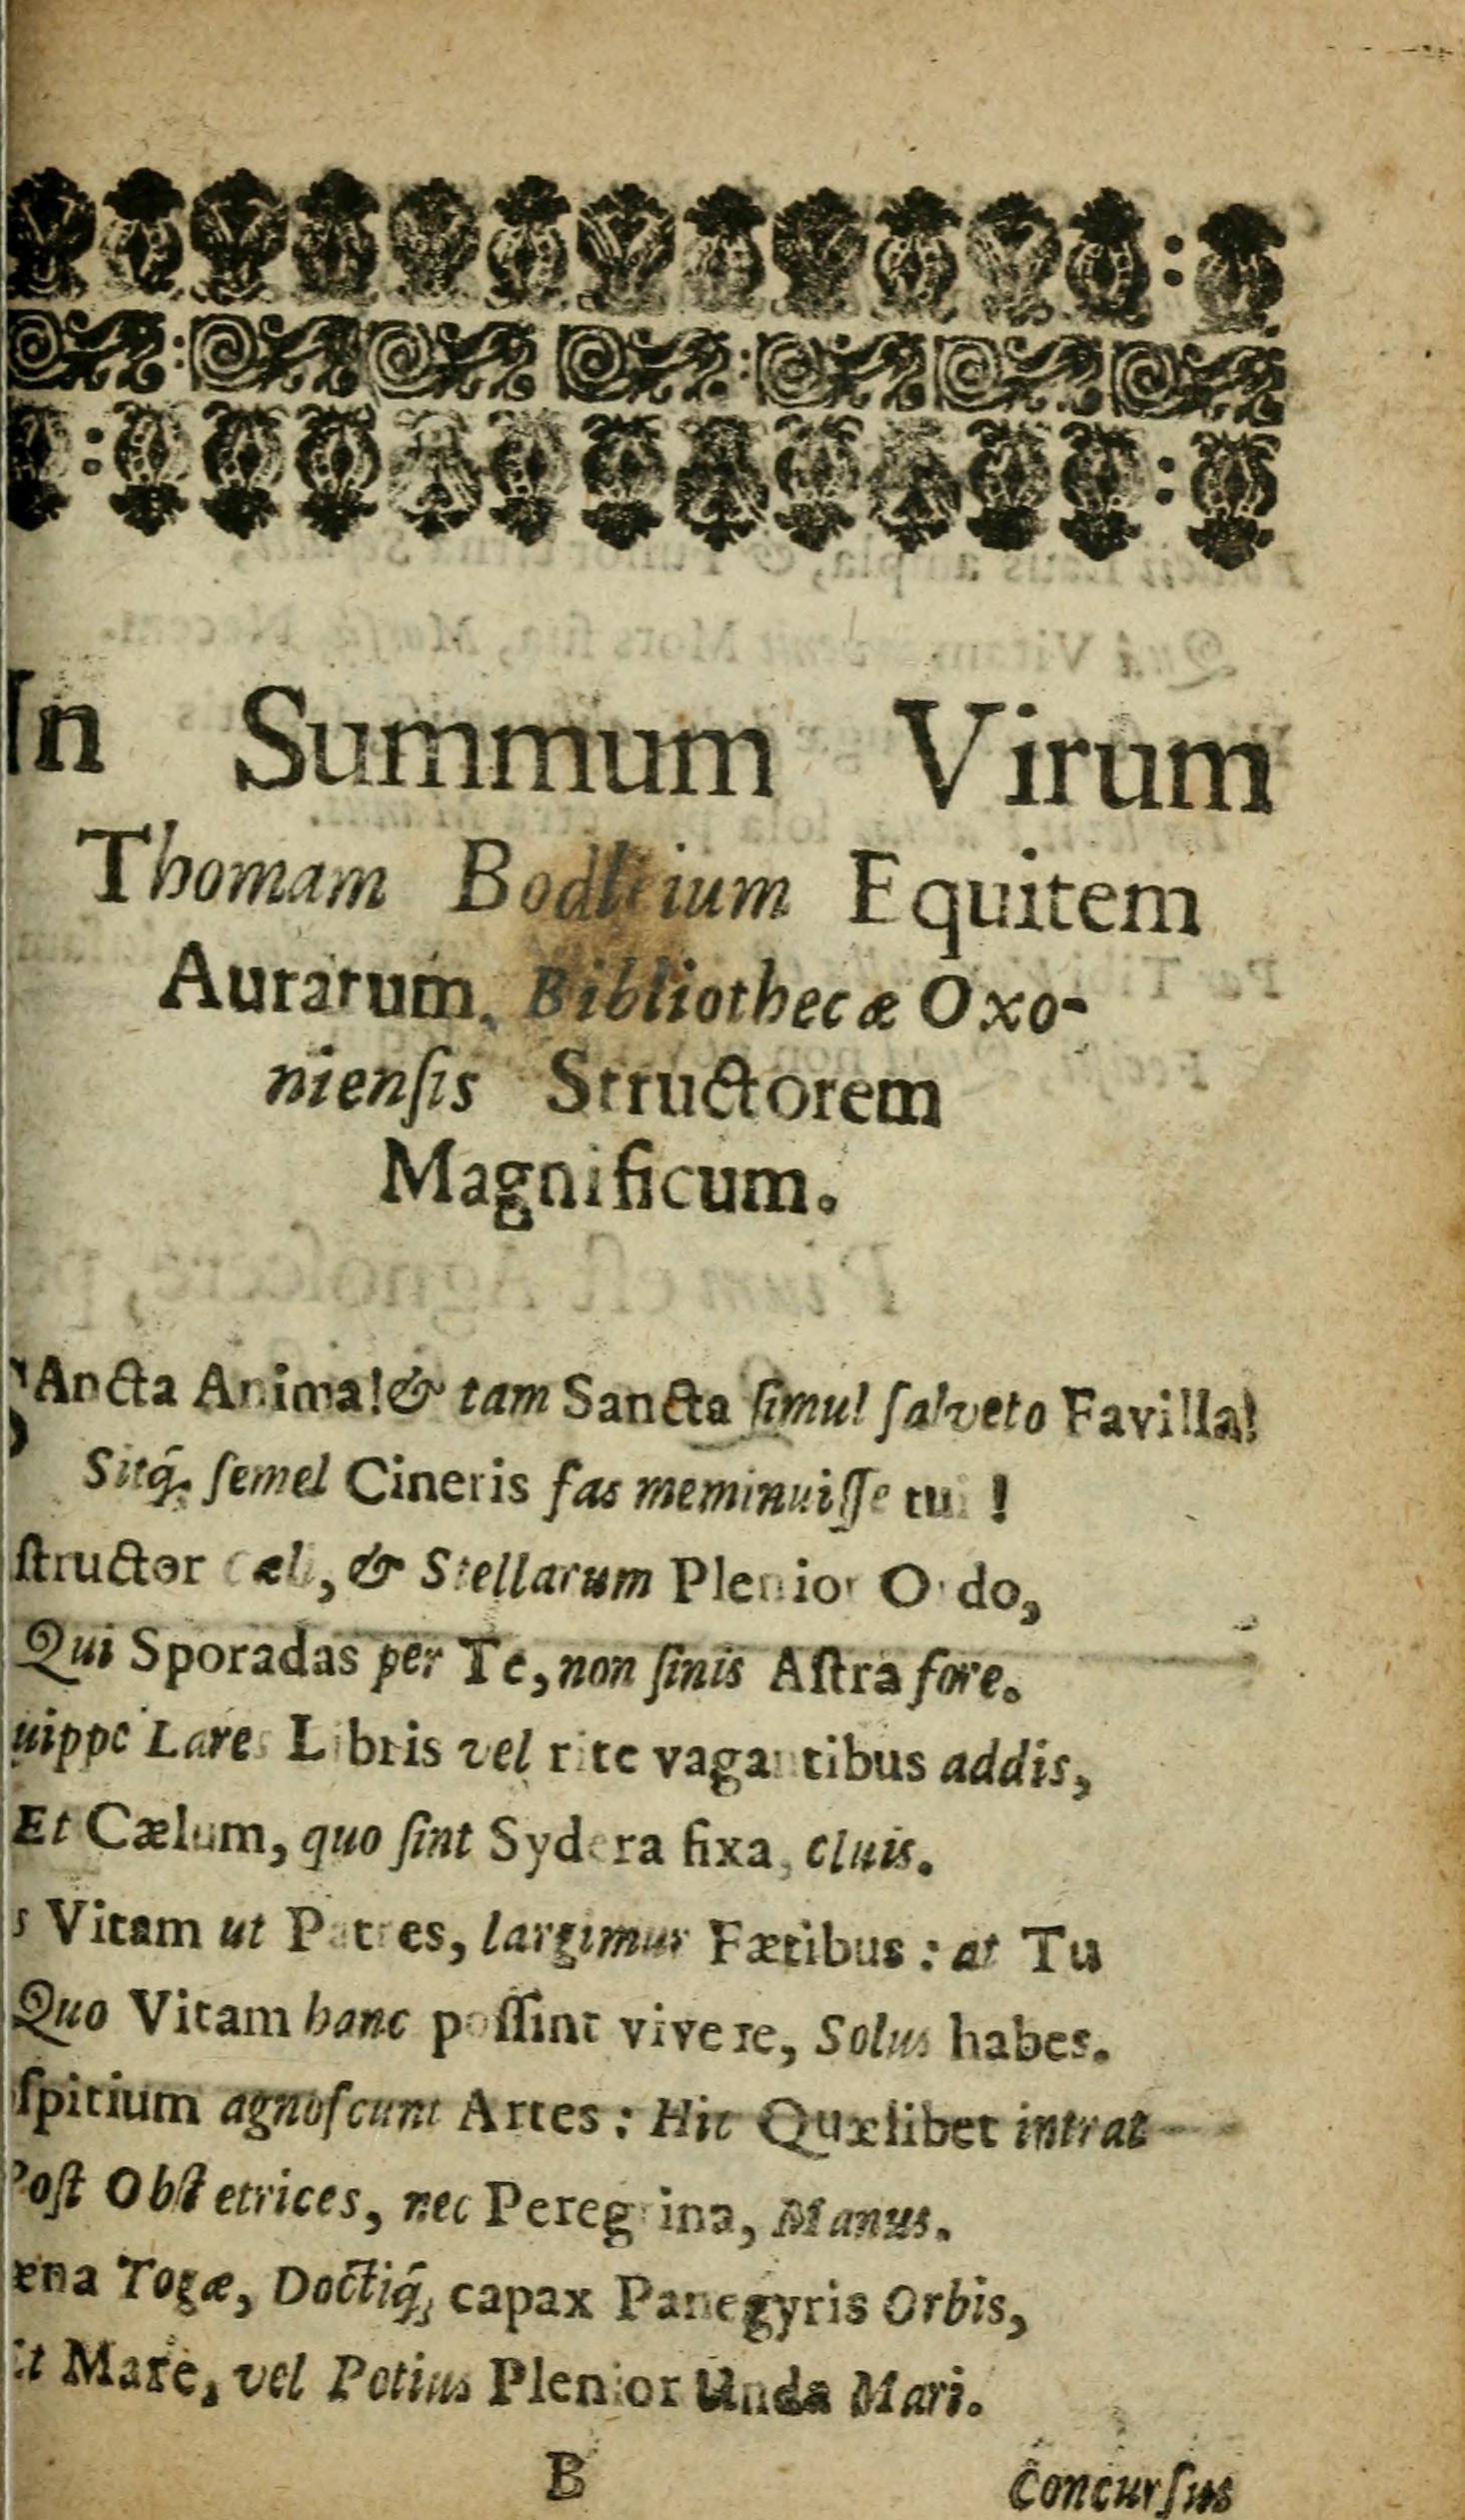 In Summum Virum
Thomam Bodleium Equitem
Auratum, Bibliothecæ Oxo-
nienſis Structorem
Magnificum.
SAncta Anima! & tam Sancta ſimul ſalveto Favilla!
Sitq̃; ſemel Cineris fas meminuiſſe tui !
ſtructor Cæli, & Stellarum Plenior Ordo,
Qui Sporadas per Te, non ſinis Aſtra fore.
uippe Lares Libris vel rite vagantibus addis,
Et Cælum, quo ſint Sydera fixa, cluis.
s Vitam ut Patres, largimur Fætibus : at Tu
Quo Vitam hanc poſſint vivere, Solus habes.
ſpitium agnoſcunt Artes : Hic Quælibet intrat
Poſt Obſtetrices, nec Peregrina, Manus.
ena Togæ, Doctiq̃; capax Panegyris Orbis,
Et Mare, vel Potius Plenior Unda Mari.
B
Concurſus